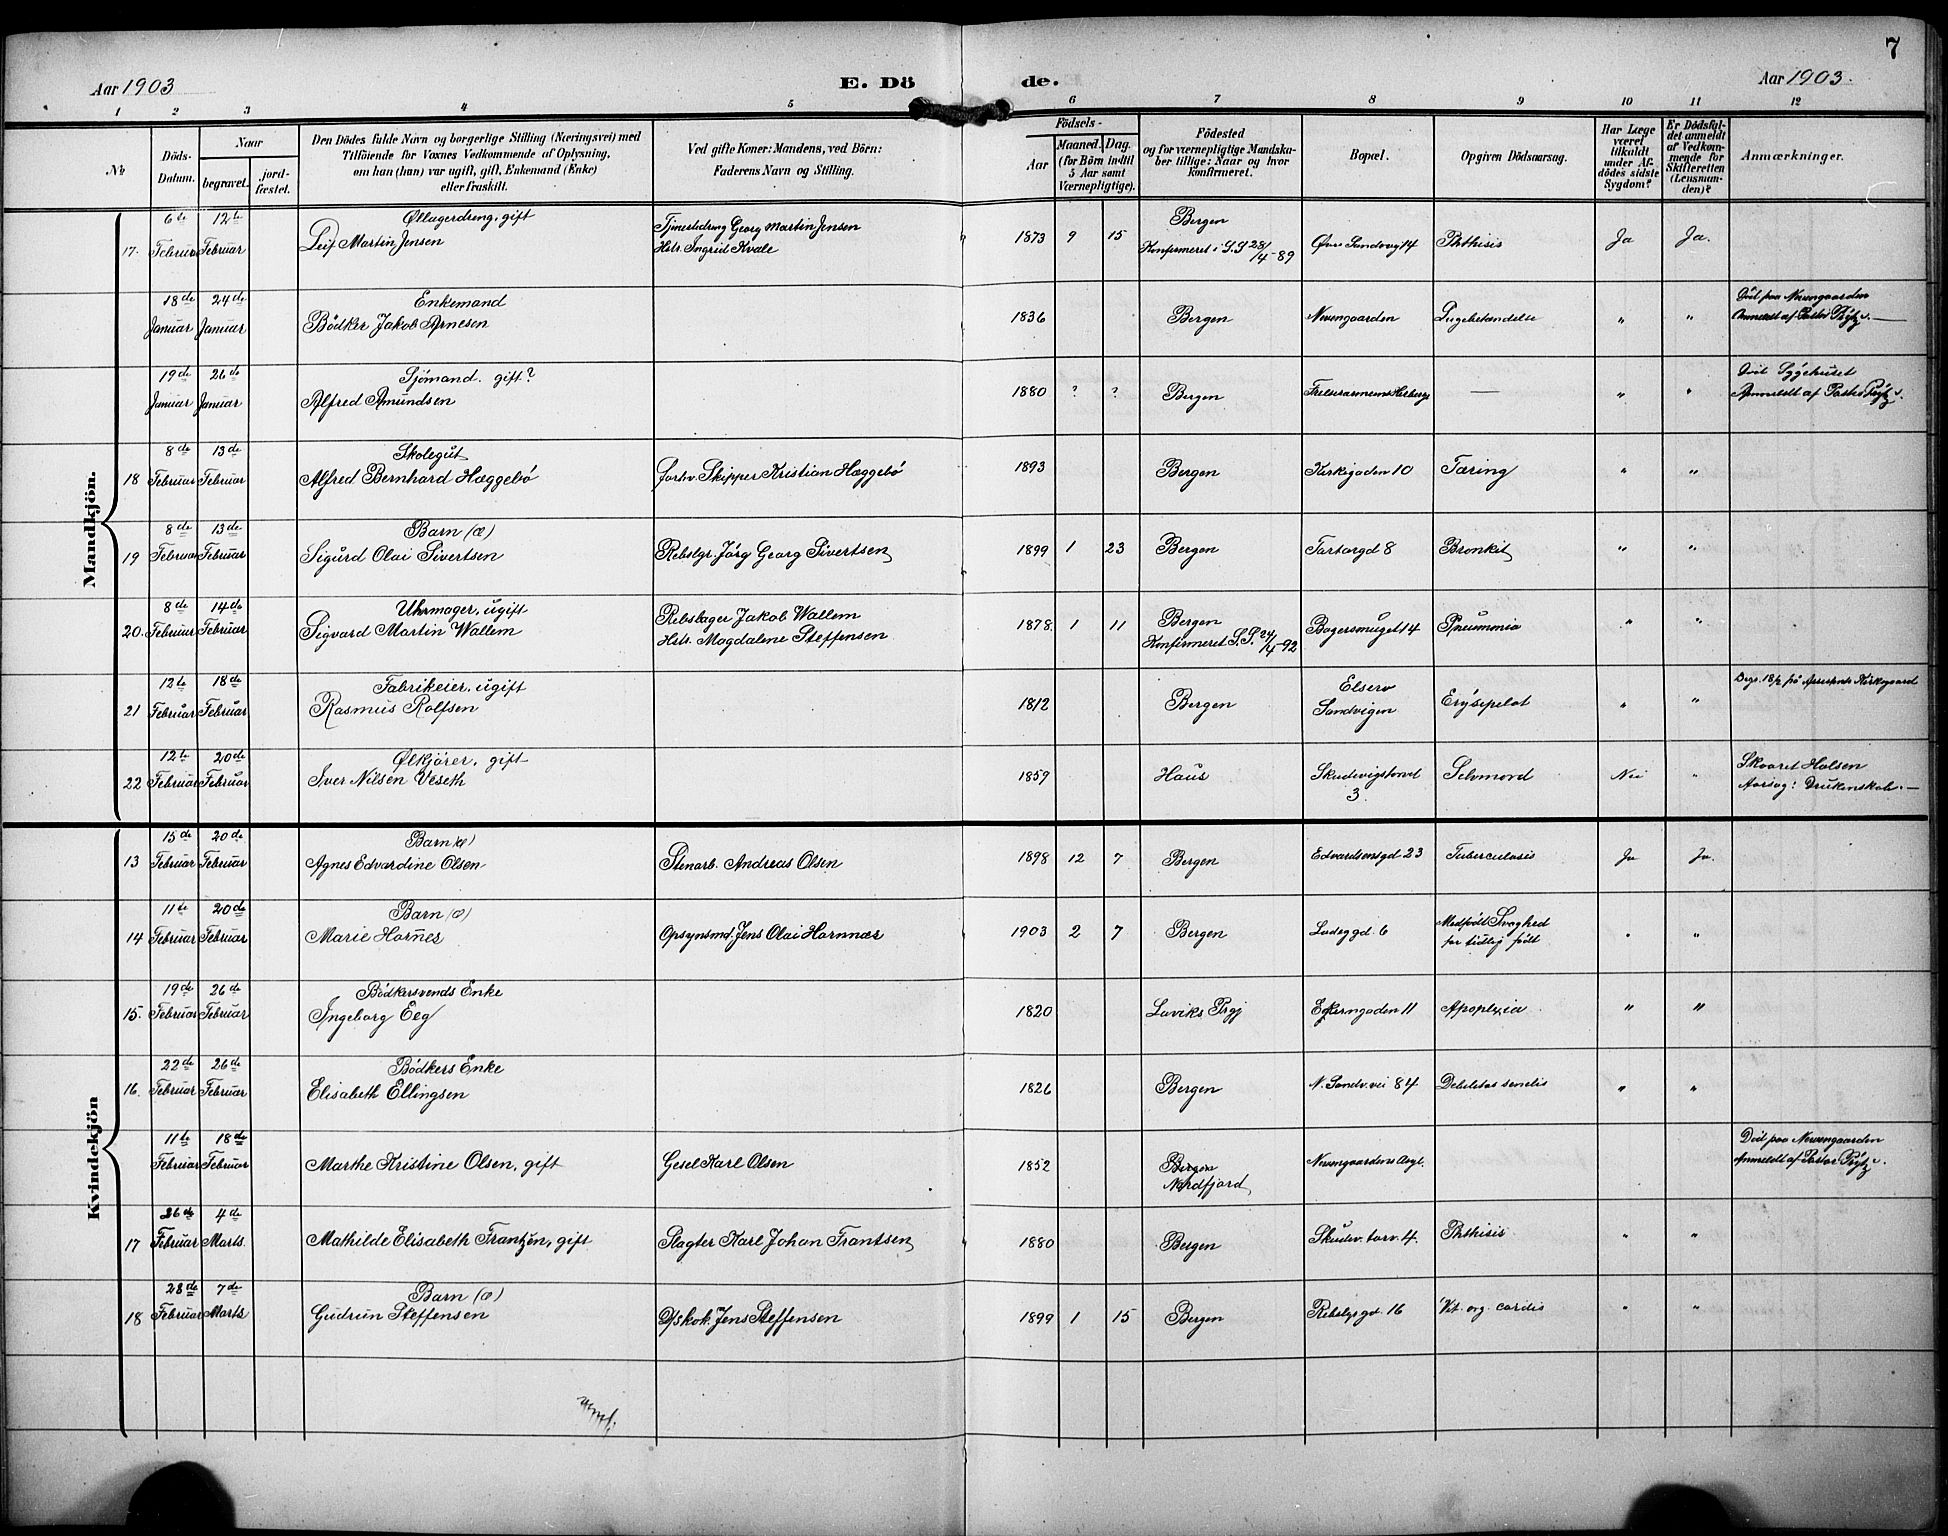 7
Aar 1903
E. Dö
de.
Aar 1903.
1 2 3 4 5 6 7 8 9 10 11 12
No
Döds-
Datum.
Naar
begravet.
jord-
fæstet.
Den Dödes fulde Navn og borgerlige Stilling (Næringsvei) med
Tilföiende for Voxnes Vedkommende af Oplysning,
om han (hun) var ugift, gift, Enkemand (Enke)
eller fraskilt.
Ved gifte Koner: Mandens, ved Börn:
Faderens Navn og Stilling.
Födsels-
Aar
Maaned. Dag.
(for Börn indtil
5 Aar samt
Værnepligtige).
Födested
og for værnepligtige Mandska-
ber tillige: Naar og hvor
konfirmeret.
Bopæl.
Opgiven Dödsaarsag.
Har Læge
været
tilkaldt
under Af-
dödes sidste
Sygdom?
Er Dödsfal-
det anmeldt
af Vedkom-
mende for
Skifteretten
(Lensman-
den)?
Anmærkninger.
Mandkjön.
6te 12te Øllagerdreng, gift
17. Februar Februar Leif Martin Jensen
Georg Martin Jensen
Ingrid Kvale
1873 9 15
Bergen
Konfirmeret i S.S 23/4-89
Øvre Sandvg 14 Phthisis Ja Ja.
18de 24de Enkemand
Januar Januar Bödker Jakob Arnesen
1836 Bergen Nevengaarden Lugebetandelse " "
Död paa Nevengaarden
Anmeldt af Pastor
19de 26de Sjömand. gift?
Januar Januar Alfred Amundsen
1880 ? ? Bergen Frelsesarmeens Herberge — " "
Död Sygehuset
Anmeldt af Pastor
8de 13de Skolegut
18 Februar Februar Alfred Bernhard Hæggebö
forhv. Skipper Kristian Hæggebö
1893 Bergen Kirkegaden 10 Tæring " "
8de 13de Barn (æ)
19 Februar Februar Sigurd Olai Sivertsen
Rebslgr. Jörg Georg Sivertsen
1899 1 23 Bergen Tartargd 8 Bronkit " "
8de 14de Uhrmager, ugift
20. Februar Februar Sigvard Martin Wallem
Rebslager Jakob Wallem
Hst. Magdalene Steffensen
1878. 1 11
Bergen
Konfirmeret S.S. 24/4-92
Bagersmuget 14 Pneumonia " "
12te 18de Fabrikeier, ugift
21 Februar Februar Rasmus Rolfsen
1812 Bergen
Elsero
Sandvigen
Erysipelat " "
Begr. 18/2 på Kirkegaard
12te 20de Ølkjörer, gift
22 Februar Februar Iver Nilsen Veseth
1859 Haus
Skudevigstorvet
3
Selvmord Nei "
Skaaret Halsen
Aarsag: Drukenskab. —
Kvindekjön
15de 20de Barn (æ)
13 Februar Februar Agnes Edvardine Olsen
Stenarb. Andreas Olsen
1898 12 7 Bergen Edvardsensgd 23 Tuberculosis Ja Ja.
11te 20de Barn (æ)
14 Februar Februar Marie Hornes
Opsynsmd. Jens Olai Hornnæs
1903 2 7 Bergen Ladeggd. 6
Medfödt Svaghed
for tidlig födt
" "
19de 26de Bödkersvends Enke
15. Februar Februar Ingeborg Eeg
1820 Laviks Prgj Ekrengaden 11 Apoplexia " "
22de 26de Bödkers Enke
16. Februar Februar Elisabeth Ellingsen
1826 Bergen N. Sandv. vei 84 Debilitas senilis " "
11te 18de
Februar Februar Marthe Kristine Olsen, gift
Gesel Karl Olsen
1852
Bergen
Nordfjord
Nevengaardens
Död paa Nevengaarden
Anmeldt af Pastor
26de 4de
17 Februar Marts. Mathilde Elisabeth Frantzen, gift
Slagter Karl Johan Frantsen
1880 Bergen Skudev. torv. 4. Phthisis " "
28de 7de Barn (æ)
18 Februar Marts Gudrun Steffensen
Jens Steffensen
1899 1 15 Bergen Rebslgrgd. 16 Vit. org. cordis " "